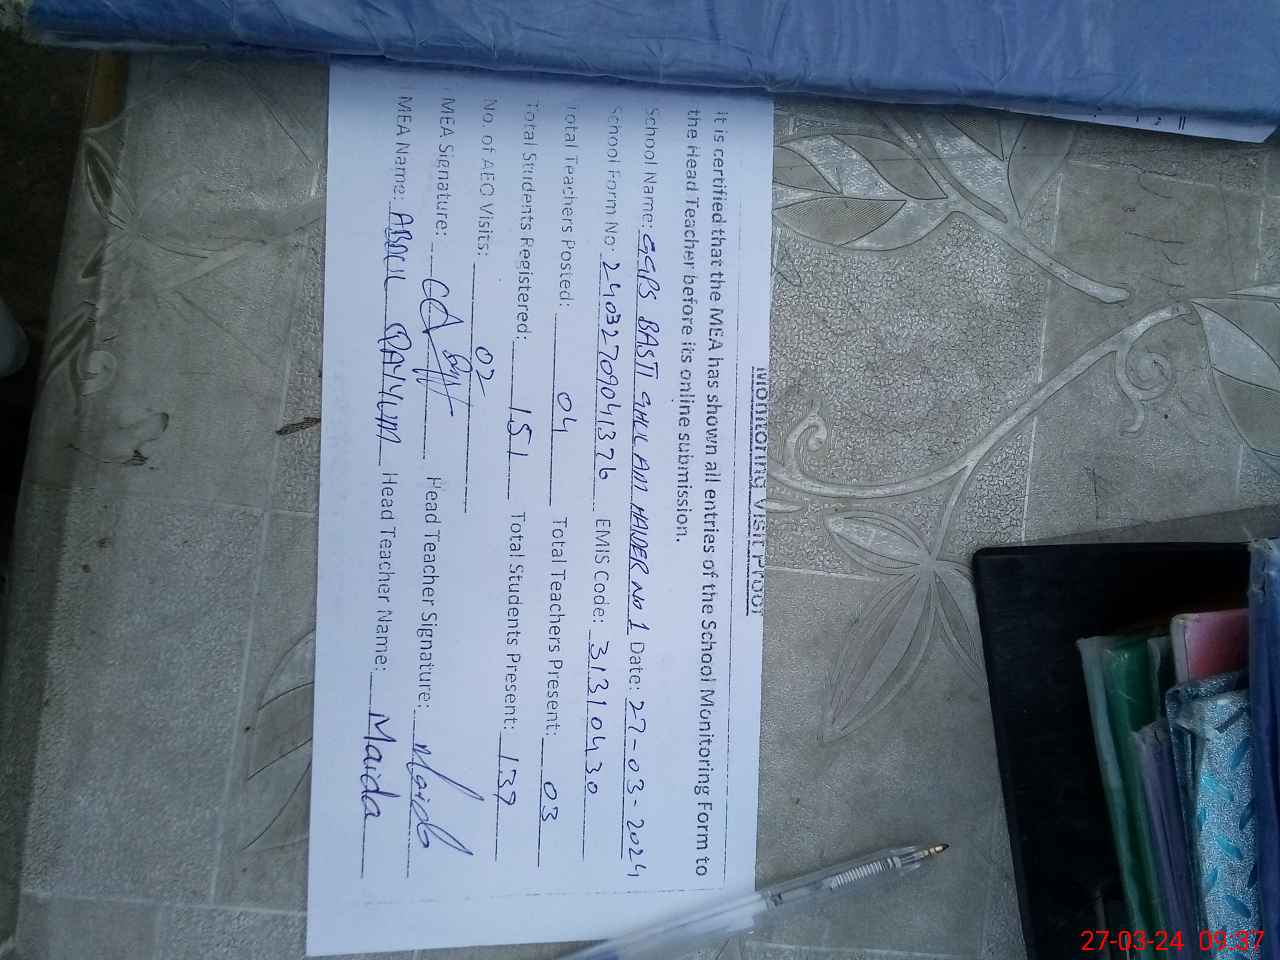 Monitoring Visit Proof
it is certified that the MEA has shown all entries of the School Monitoring Form to
the Head Teacher before its online submission.
School Name: GGPS BASTI GHULAM HAIDER No 1 Date: 27-03-2024
School Form No: 24032709041376 EMIS Code: 31310430
Total Teachers Posted: 04 Total Teachers Present: 03
Total Students Registered: 151 Total Students Present: 139
No. of AEO Visits: 02
MEA Signature: Head Teacher Signature: Maida
MEA Name: ABDUL QAYYUM Head Teacher Name: Maida
27-03-24 09:37